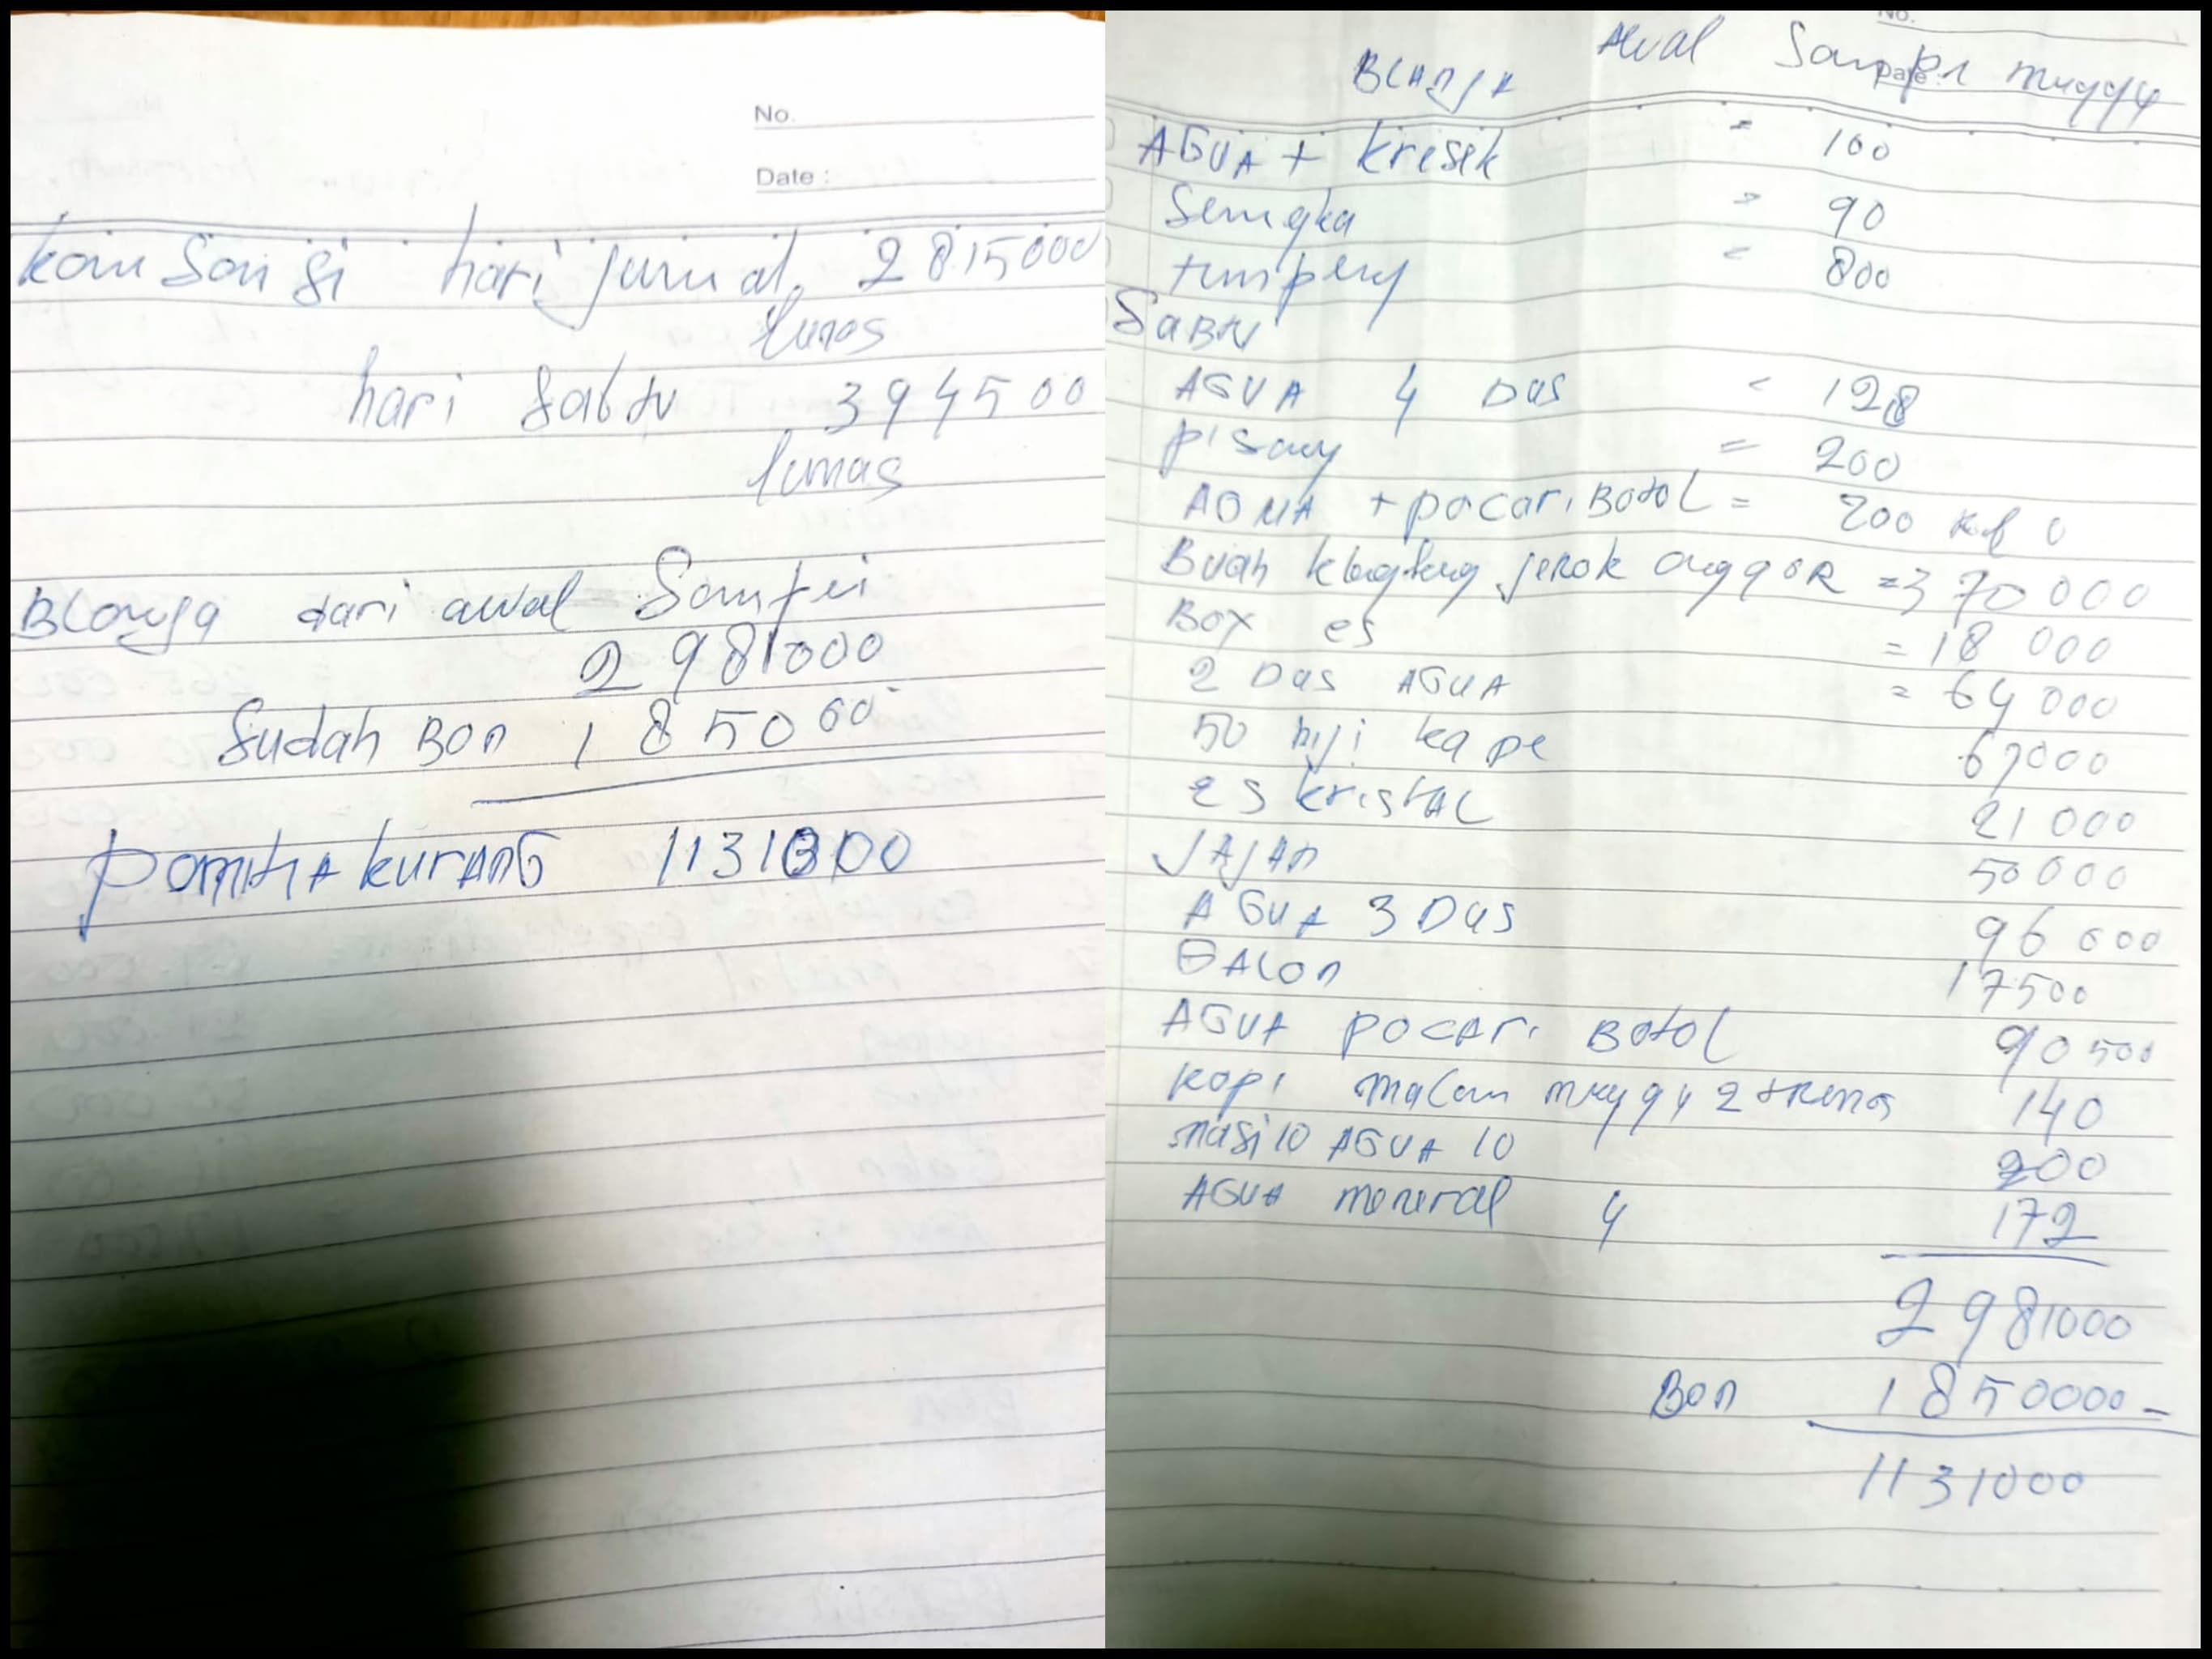 No.
Date :
komsonsi hari jumat. 2815000
lunas
hari sabtu 394500
lunas
Blonga dari awal Sampei
2981000
Sudah Bon 185000
pomitiA kurANG 1131000
No.
Date :
BLAnjA Awal Sampi muggy
AGUA + kresek = 100
Semgka = 90
tumpeng = 800
SaBtu
AGUA 4 Dus = 128
pisang = 200
AGUA + pocari Botol = 200
Buah klengkeng jerok anggoR = 370000
Box es = 18 000
2 Dus AGUA = 64 000
50 biji kape 67000
es kristAL 21 000
JAJAn 50 000
AGUA 3 Dus 96 000
GALon 17500
AGUA pocAri Botol 90 500
kopi malam muggy 2 140
nasi 10 AGUA 10 200
AGUA meneral 4 172
2981000
Bon 1850000 -
1131000